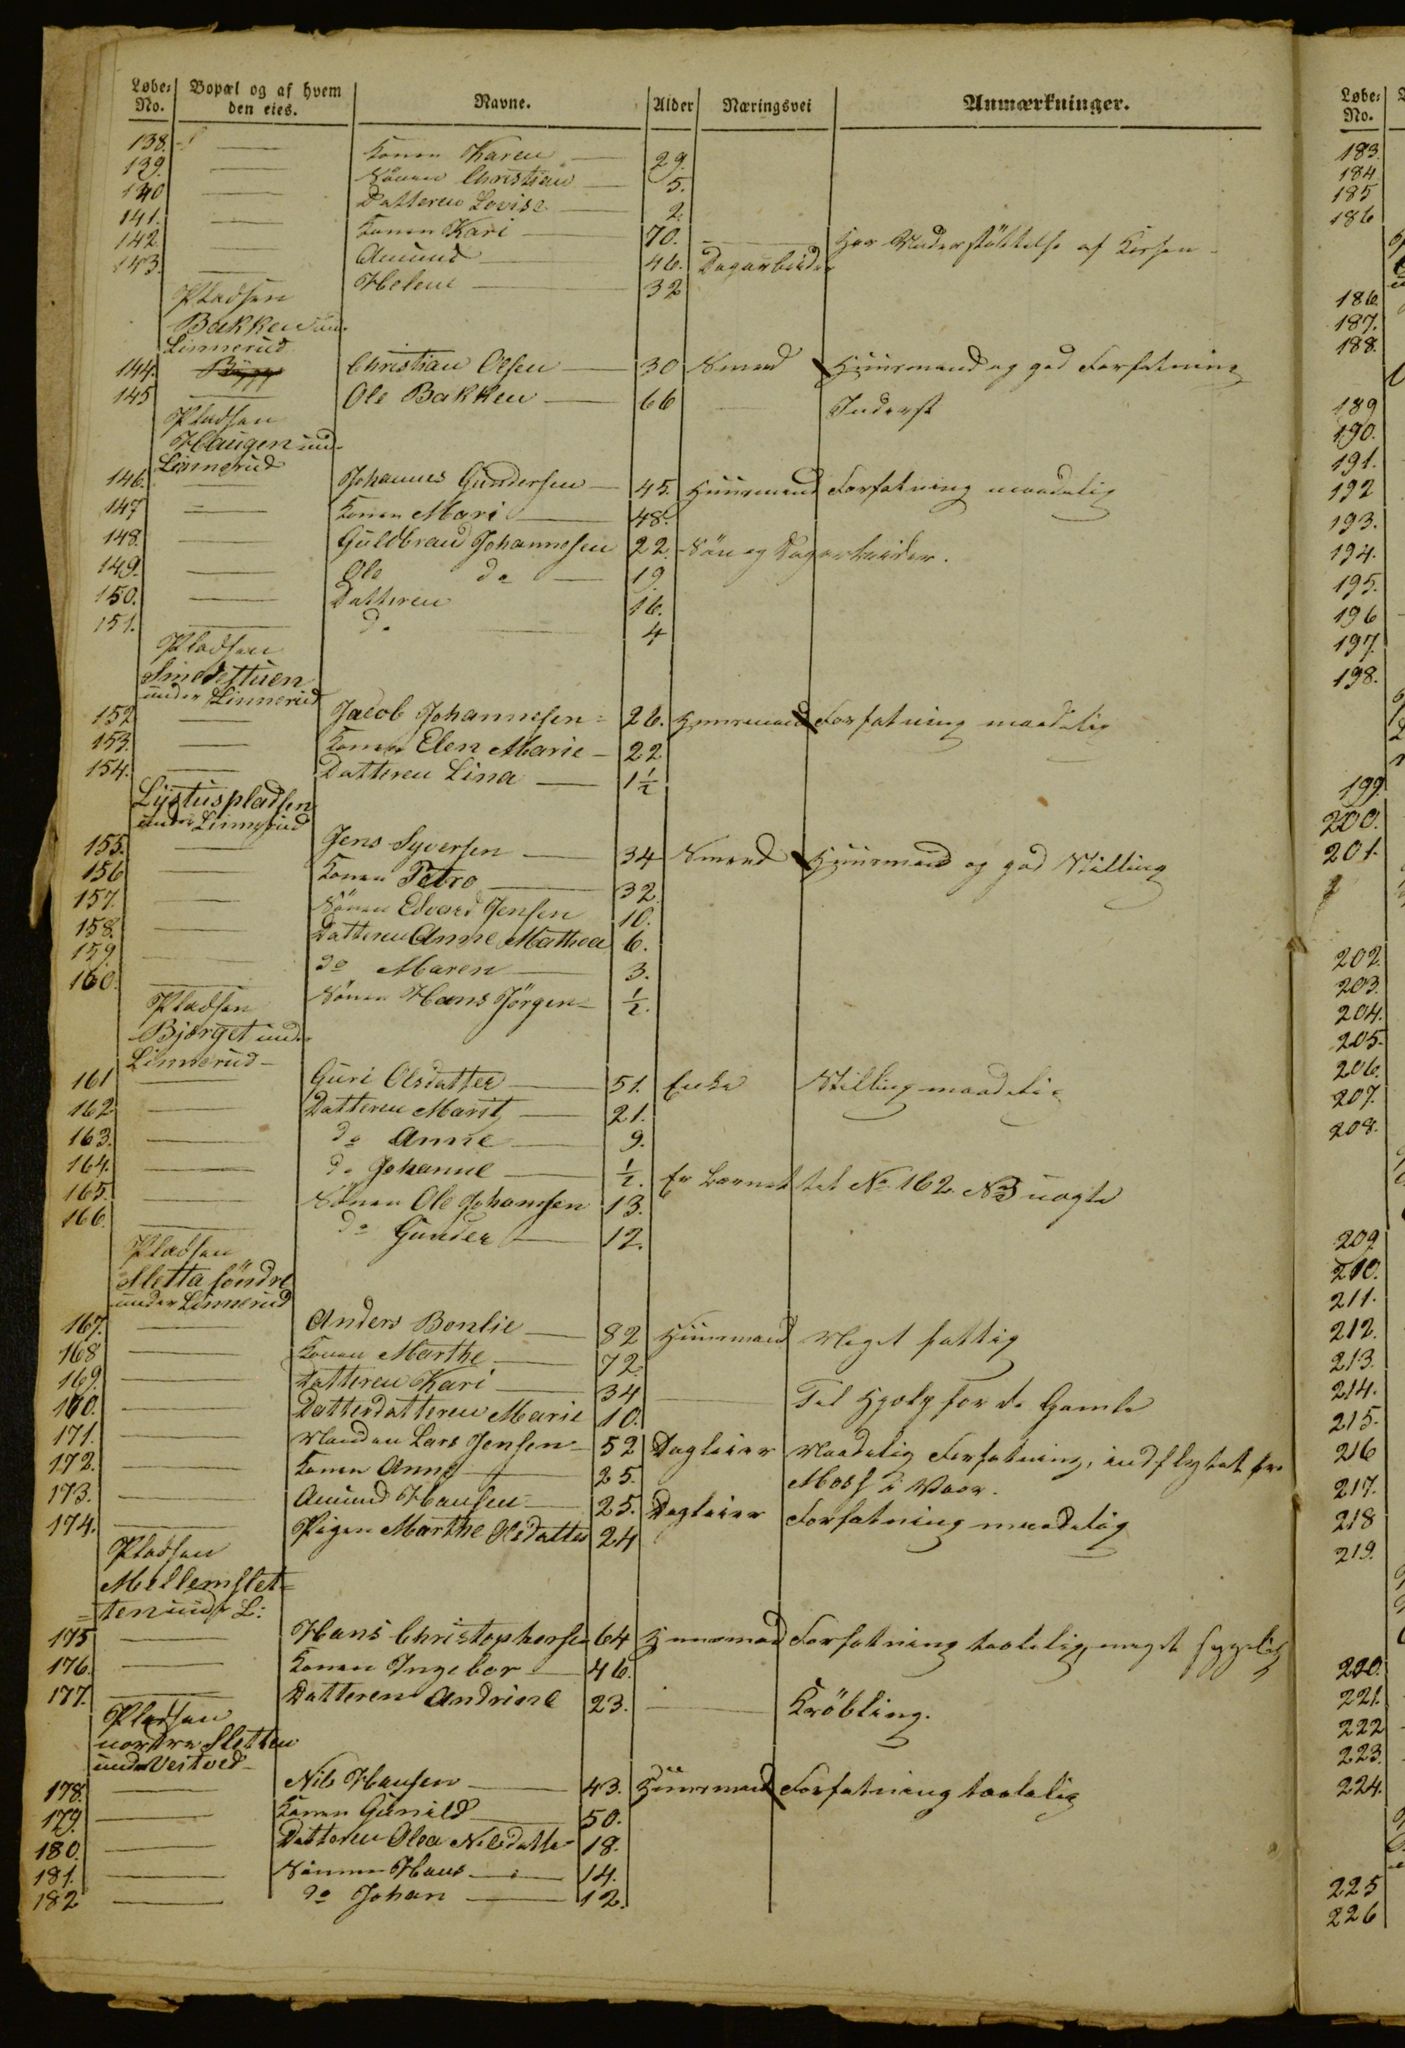 Løbe- No. Bopæl og af hvem den eies. Navne. Alder Næringsvei Anmærkninger.
138. Konen Karen 29.
139. Sönen Christian 5.
140 Datteren Lovise 2.
141. Konen Kari 70. Har Understöttelse af Kassen
142. Amund 46. Dagarbeider
143. Helene 32
Pladsen
Bakken un-
Linnerud
144. Christian Olsen 30 Smed Huusmand og god Forfatning
145 Ole Bakken 66 Inderst
Pladsen
Haugen und-
Linnerud
146. Johannes Gundersen 45. Huusmand Forfatning maadelig
147 Konen Mari 48.
148. Guldbrand Johannesen 22. Sön og Dagarbeider.
149. Ole do 19
150. Datteren 16.
151. do 4
Pladsen
Smedstuen
under Linnerud
152 Jacob Johannesen 26. Huusmand Forfatning maadelig
153. Konen Elen Marie 22
154. Datteren Lina 1½
Lystuspladsen
under Linnerud
155. Jens Syversen 34 Smed Huusmand og god Stilling
156 Konen Petro 32
157. Sönen Edvard Jensen 10.
158. Datteren Anne Mathea 6.
159. do Maren 3.
160. Sönen Hans Jörgen ½.
Pladsen
Bjerget und-
Linnerud
161 Guri Olsdatter 51. Enke Stilling maadelig
162 Datteren Marit 21.
163. do Anne 9.
164. do Johanne ½. Er Barnet til No. 162. NB uægte
165. Sönen Ole Johansen 13.
166. do Gunder 12.
Pladsen
Sletta söndre
under Linnerud
167. Anders Bonlie 82 Huusmand Meget fattig
168 Konen Marthe 72.
169. Datteren Kari 34 Til Hjælp for de Gamle
170. Datterdatteren Marie 10.
171. Manden Lars Jensen 52 Dagleier Maadelig Forfatning, indflyttet fra
172. Konen Anne 25. Moss i Vaar.
173. Amund Hansen 25. Dagleier Forfatning maadelig
174. Pigen Marthe Olsdatter 24
Pladsen
Mellemslet-
ten und. L:
175 Hans Christophersen 64 Huusmand Forfatning taalelig, meget sygelig
176. Konen Ingebor 46.
177. Datteren Andrine 23. Kröbling.
Pladsen
nordre Sletten
under Vestved
178. Nils Hansen 43. Huusmand Forfatning taalelig
179. Konen Gunild 50.
180. Datteren Olea Nilsdatter 18.
181. Sönnen Hans 14.
182 do Johan 12.
Løbe- No.
183.
184
185
186
186.
187.
188.
189
190.
191.
192
193.
194.
195.
196
197.
198.
199.
200.
201.
202.
203.
204.
205.
206.
207.
208.
209
210.
211.
212.
213.
214.
215.
216
217.
218
219.
220.
221.
222
223.
224.
225
226